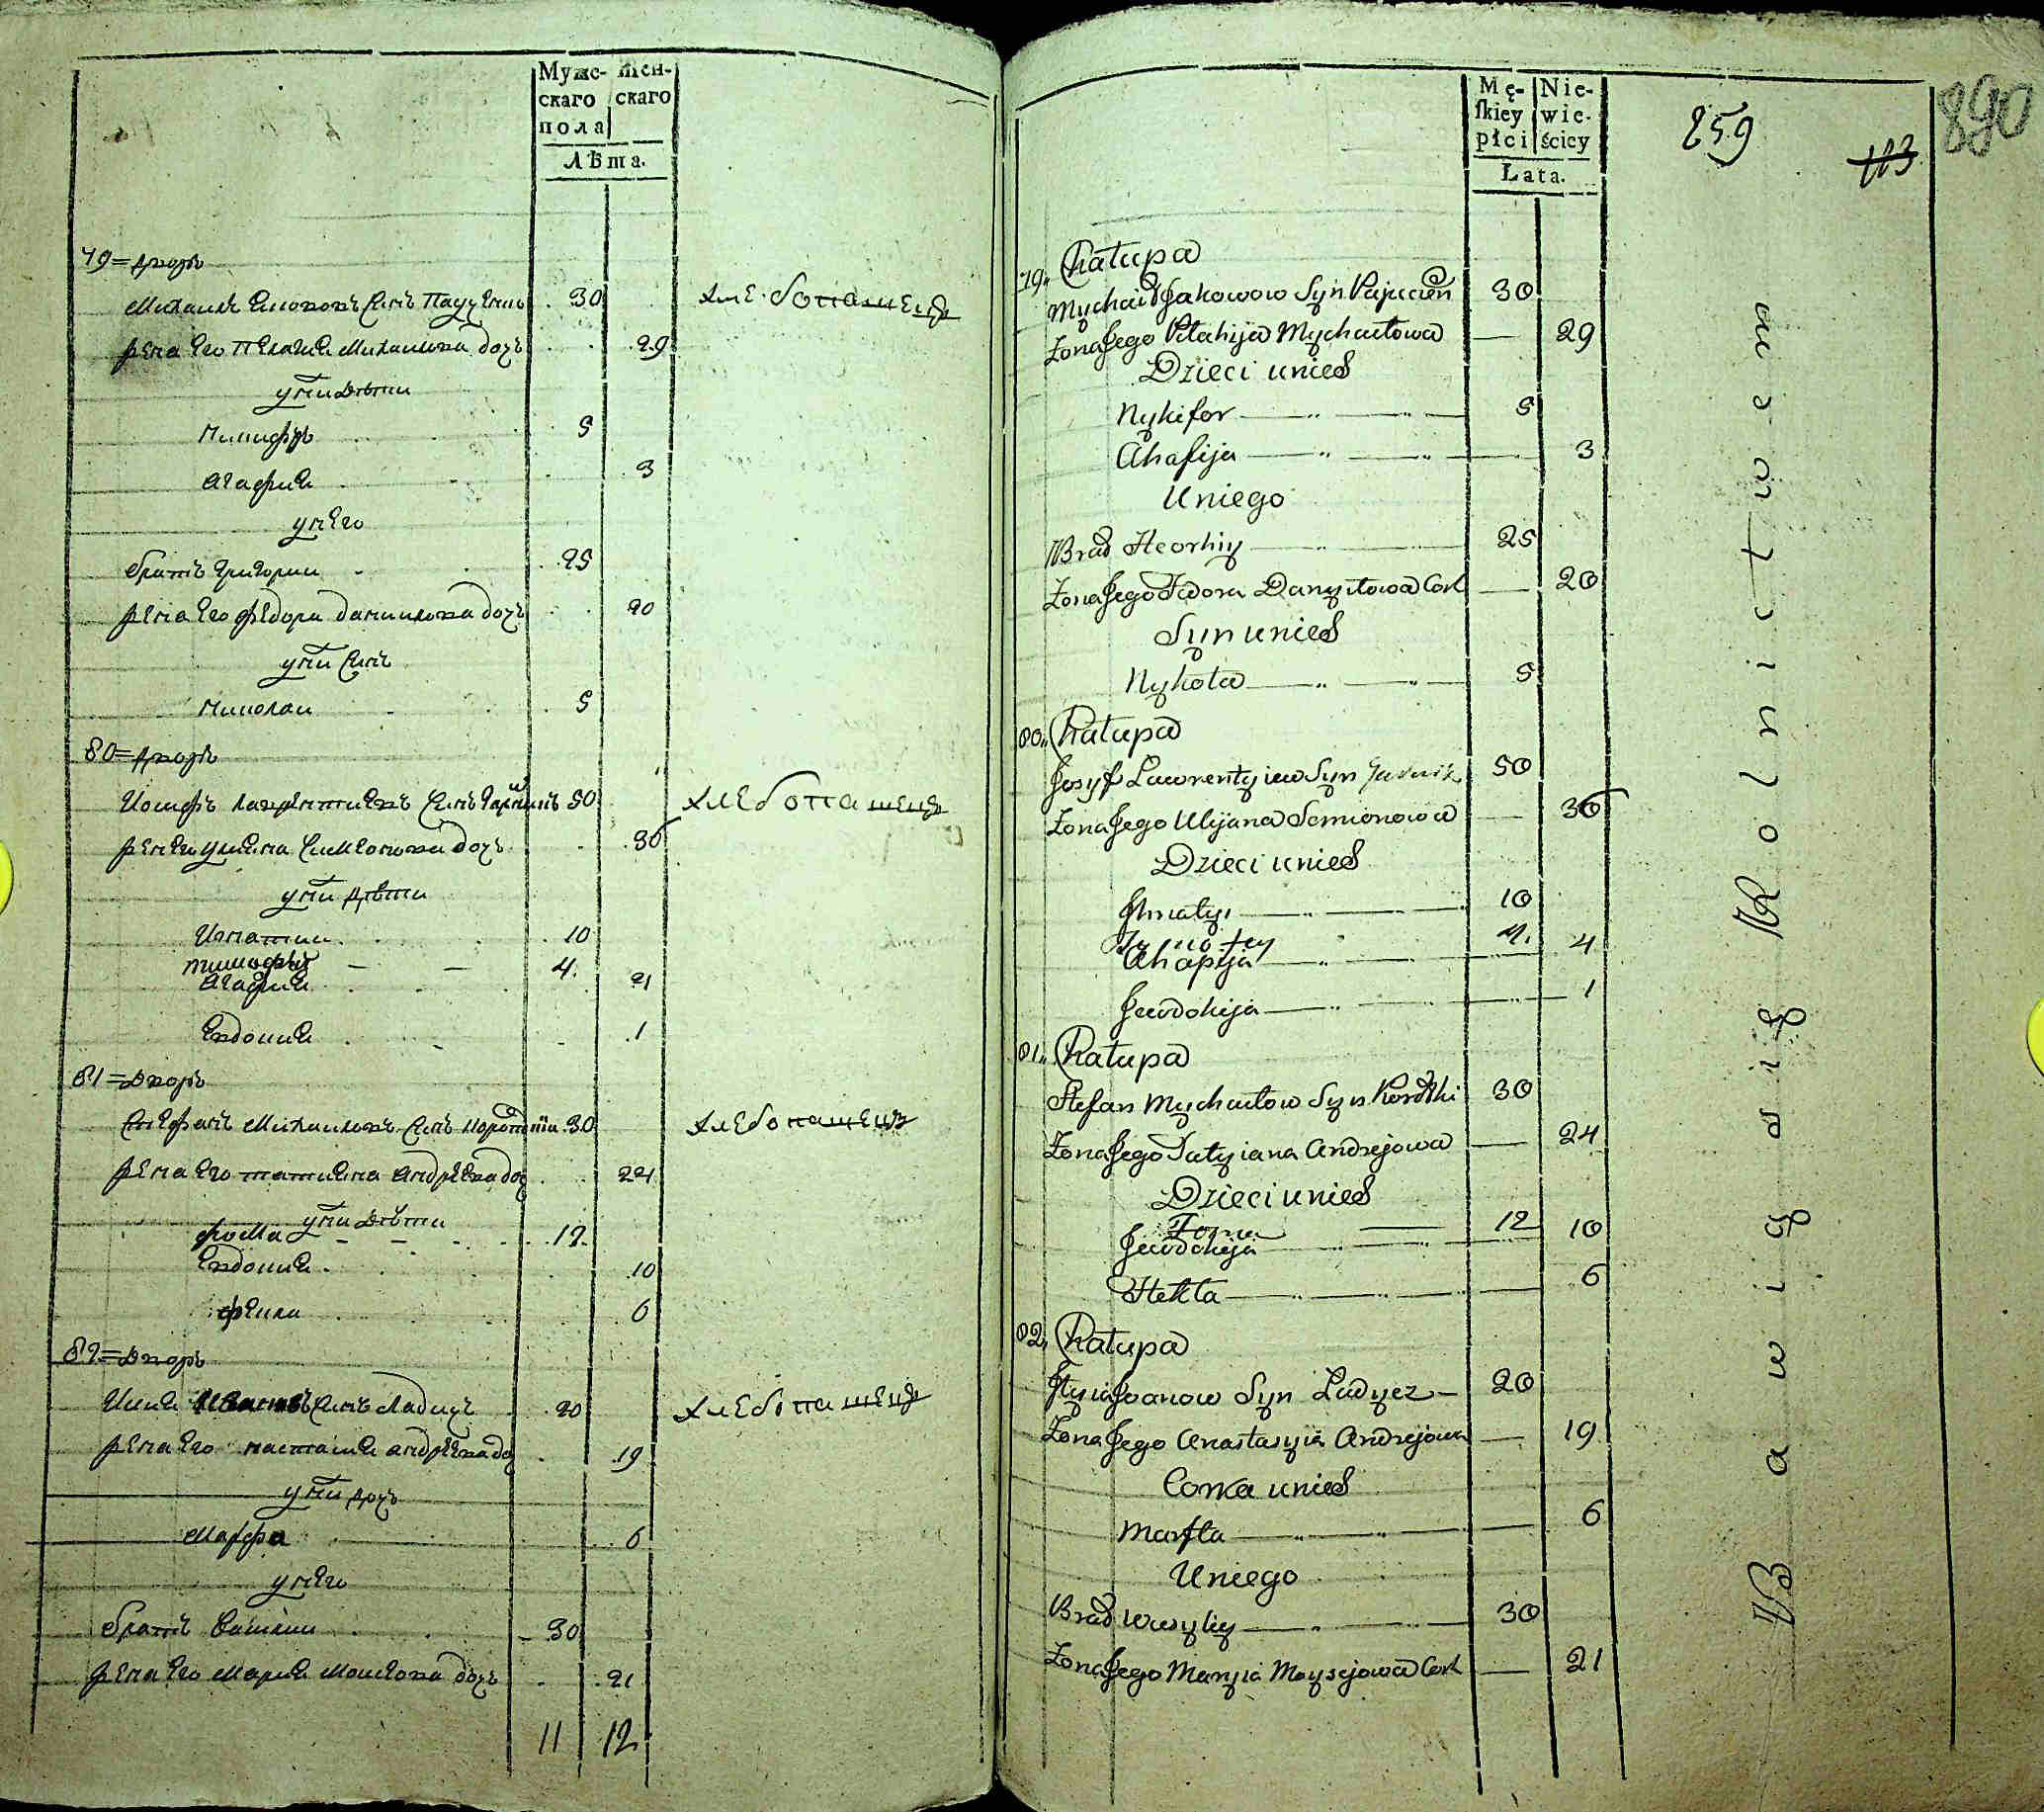 Мужс-
скаго
пола
женскаго
Лѣта.
79= дворъ
Михаилъ Яковлевъ Сынъ Паученъ 30 хлебопашецъ
Жена Его Пелагия Михаилова дочь 29
у них дѣти
Никифоръ 5
Агафия 3
у него
братъ Григории 25
Жена Его Федора Даниилова дочь 20
у них Сынъ
Николаи 5
80= дворъ
Иосифъ Лаврентиевъ Сынъ 50 хлебопашецъ
Жена Его Улияна Симеонова дочь 36
у них дѣти
Игнатии 10
Тимофѣй 4.
Агафия 4
Евдокия 1
81= дворъ
Стефанъ Михаиловъ Сынъ 30 хлебопашецъ
Жена Его татияна Андреева доч 24
у них дѣти
фома 12
Евдокия 10
фекла 6
82= дворъ
Илия Ивановъ Сынъ Ладичъ 20 хлебопашецъ
Жена Его настасия андреева до 19
у них дочь
Марфа 6
у него
братъ Василии 30
Жена Его Мария Моисеова дочь 21
11 12
Mę-
skiey
płci
Nie-
wie-
ściey
Lata.
259
113
890
79„ Chałupa
Mychaił Jakowow Syn 30
Żona Jego Pelahija Mychaiłowa — 29
Dzieci unich
Nykifor 5
Ahafija 3
Uniego
Brad Heorhiy 25
Żona Jego Fedora Danyiłowa Cork — 20
Syn unich
Nykoła 5
80„ Chałupa
Josyf Lawrentyiew Syn 50
Żona Jego Ulijana Semionowa — 36
Dzieci unich
Ihnatyi 10
Tymofey 4.
Ahapija 4
Jewdokija 1
81„ Chałupa
Stefan Mychaiłow Syn 30
Żona Jego Tatyiana Andrejowa — 24
Dzieci unich
Foma 12
Jewdokija 10
Hekla 6
82„ Chałupa
Ilyia Joanow Syn Ladycz — 20
Żona Jego Anastasyia Andrejowa — 19
Corka unich
Marfta 6
Uniego
Brad Wasyliy 30
Żona Jego Maryia Moysejowa Cork — 21
Bawią się Rolnictwem